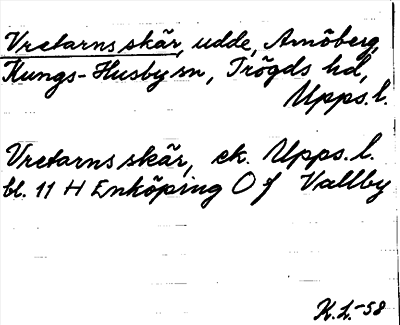 Vretarns skär, udde, Arnöberg,
Kungs-Husby sn, Trögds hd,
Upps. l.
Vretarns skär, ek. Upps. l.
bl. 11 H Enköping O f Vallby
K.L.-58